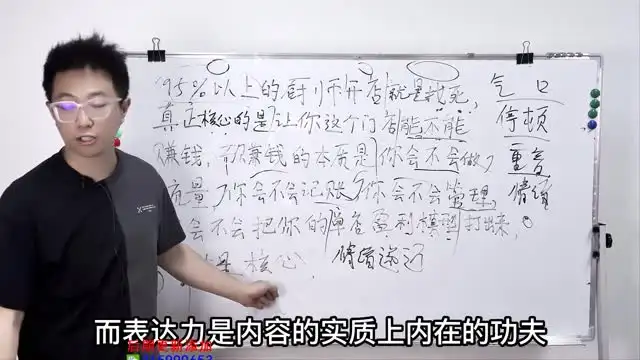 95%以上的厨师开店就是找死, 气口
真正核心的是让你这个门店能不能 停顿
赚钱, 而赚钱的本质是你会不会做 重音
流量, 你会不会记账, 你会不会管理, 情绪
会不会把你的单店盈利模型打出来,
核心, 情绪递远
而表达力是内容的实质上内在的功夫